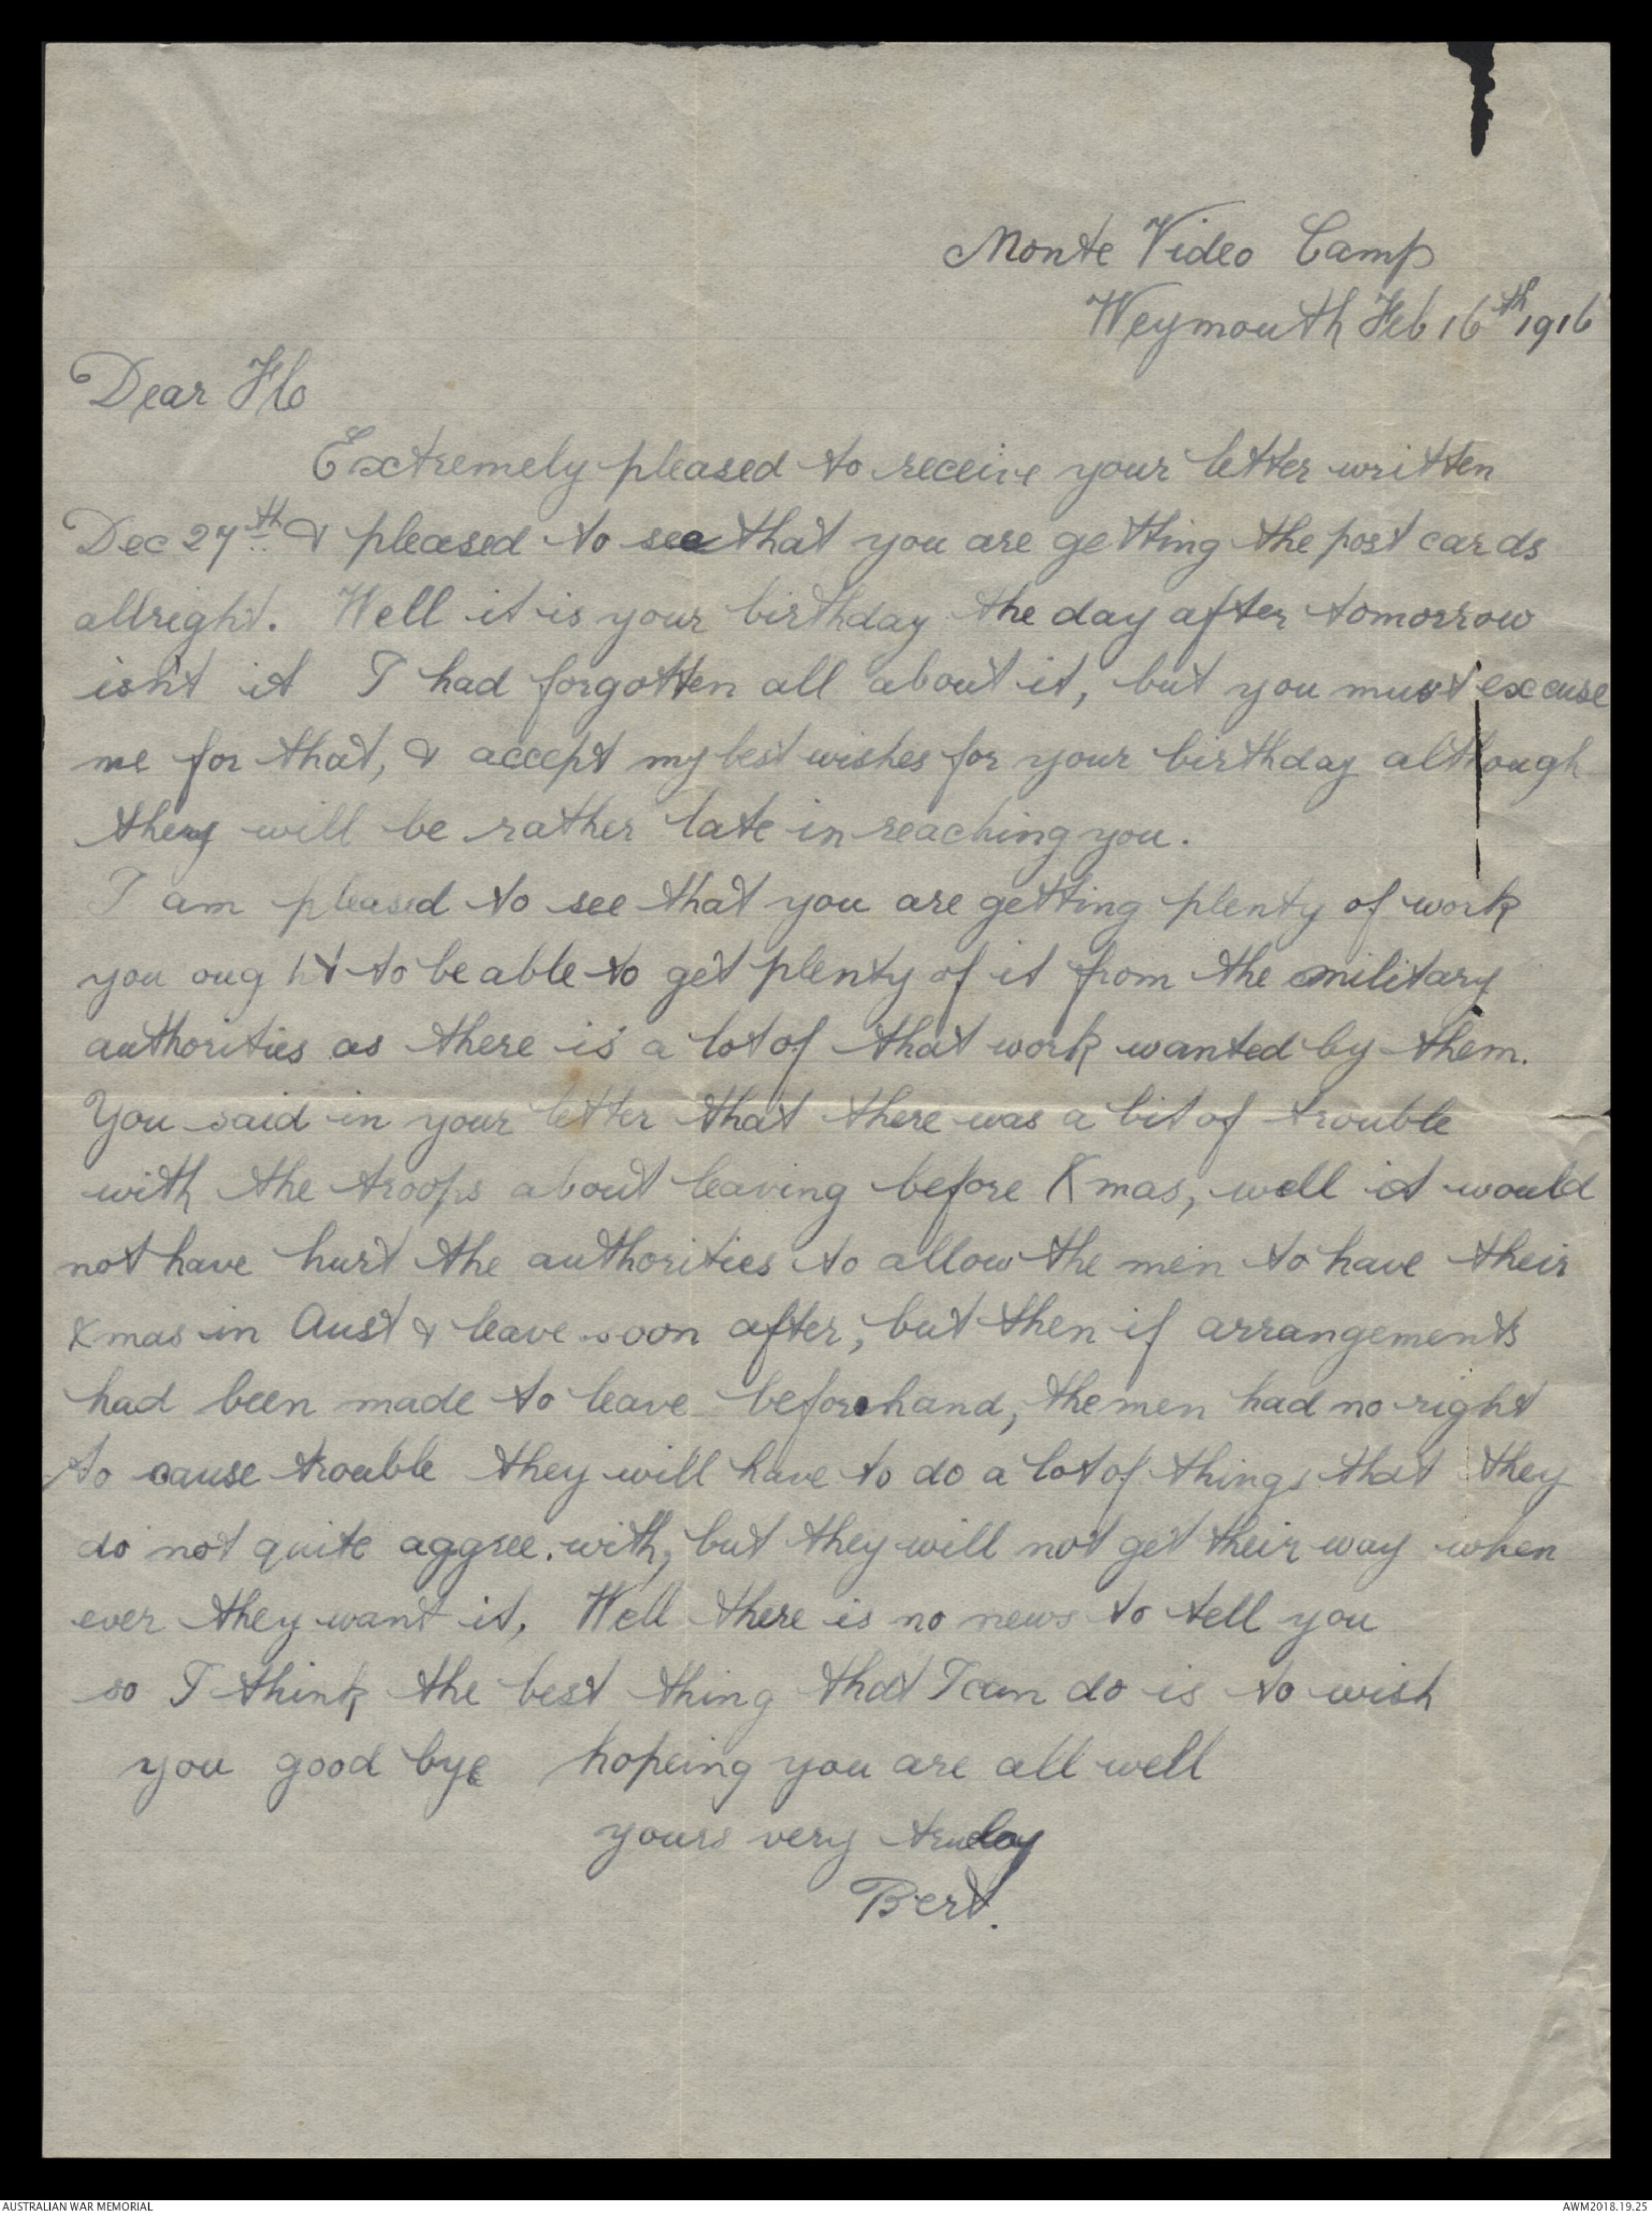 Monte Video Camp
Weymouth Feb 16th 1916
Dear Flo
Extremely pleased to receive your letter written
Dec 27th & pleased to see that you are getting the post cards
allright. Well it is your birthday the day after tomorrow
isn't it I had forgotten all about it, but you must excuse
me for that, & accept my best wishes for your birthday although
they will be rather late in reaching you.
I am pleased to see that you are getting plenty of work
you ought to be able to get plenty of it from the military
authorities as there is a lot of that work wanted by them.
You said in your letter that there was a bit of trouble
with the troops about leaving before Xmas, well it would
not have hurt the authorities to allow the men to have their
Xmas in Aust & leave soon after, but then if arrangements
had been made to leave beforehand, the men had no right
to cause trouble they will have to do a lot of things that they
do not quite aggree. with, but they will not get their way when
ever they want it. Well there is no news to tell you
so I think the best thing that I can do is to wish
you good bye hopeing you are all well
yours very truley
Bert.
AUSTRALIAN WAR MEMORIAL
AWM2018.19.25